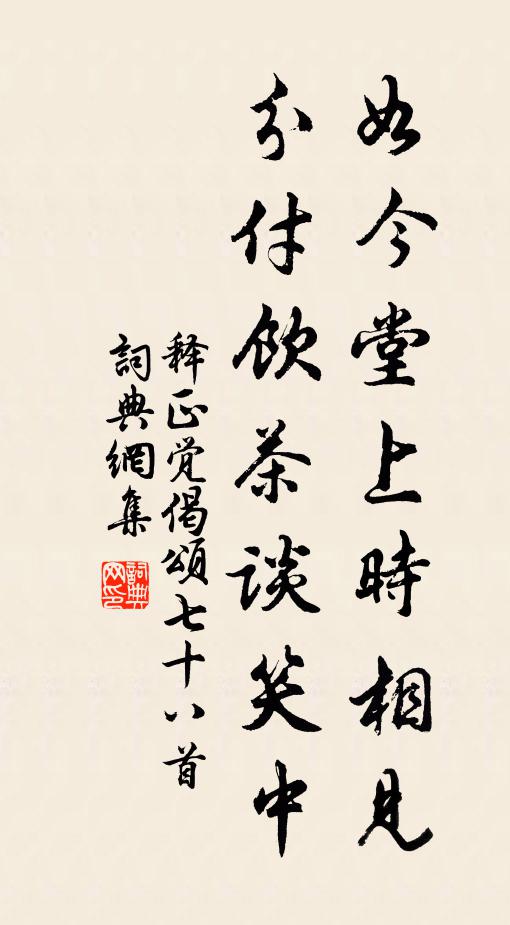 如今堂上時相見
分付飲茶談笑中
释正觉偈頌七十八首
詞典網集
詞典网印